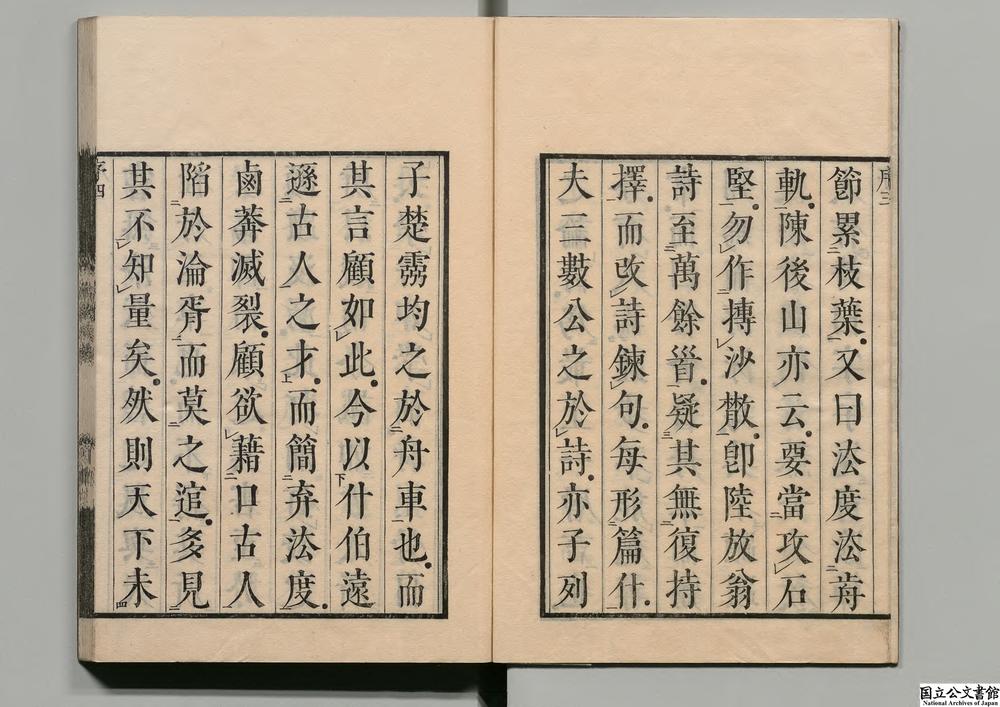 序三
節累枝葉又曰法度法前
軌陳後山亦云要當攻石
堅勿作摶沙散卽陸放翁
詩至萬餘首疑其無復持
擇而改詩鍊句每形篇什
夫三數公之於詩亦子列
子楚霶均之於舟車也而
其言顧如此今以什伯遠
遜古人之才而簡弃法度
鹵莽滅裂顧欲藉口古人
陷於淪胥而莫之逭多見
其不知量矣然則天下未
序四
国立公文書館
National Archives of Japan